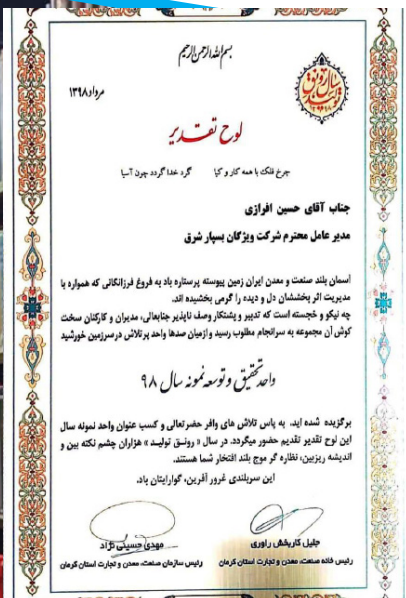 بسم الله الرحمن الرحیم
سال رونق تولید
مرداد ۱۳۹۸
لوح تقدیر
چرخ فلک با همه کار و کیا گرد خدا گردد چون آسیا
جناب آقای حسین افرازی
مدیر عامل محترم شرکت ویژگان بسپار شرق
آسمان بلند صنعت و معدن ایران زمین پیوسته پرستاره باد به فروغ فرزانگانی که همواره با
مدیریت اثر بخششان دل و دیده را گرمی بخشیده اند.
چه نیکو و خجسته است که تدبیر و پشتکار وصف ناپذیر جنابعالی، مدیران و کارکنان سخت
کوش آن مجموعه به سرانجام مطلوب رسید وازمیان صدها واحد پرتلاش درسرزمین خورشید
واحد تحقیق و توسعه نمونه سال ۹۸
برگزیده شده اید. به پاس تلاش های وافر حضرتعالی و کسب عنوان واحد نمونه سال
این لوح تقدیر تقدیم حضور میگردد. در سال « رونـق تولیـد » هزاران چشم نکته بین و
اندیشه ریزبین، نظاره گر موج بلند افتخار شما هستند.
این سربلندی غرور آفرین، گوارایتان باد.
جلیل کاربخش راوری
رئیس خانه صنعت، معدن و تجارت استان کرمان
مهدی حسینی نژاد
رئیس سازمان صنعت، معدن و تجارت استان کرمان